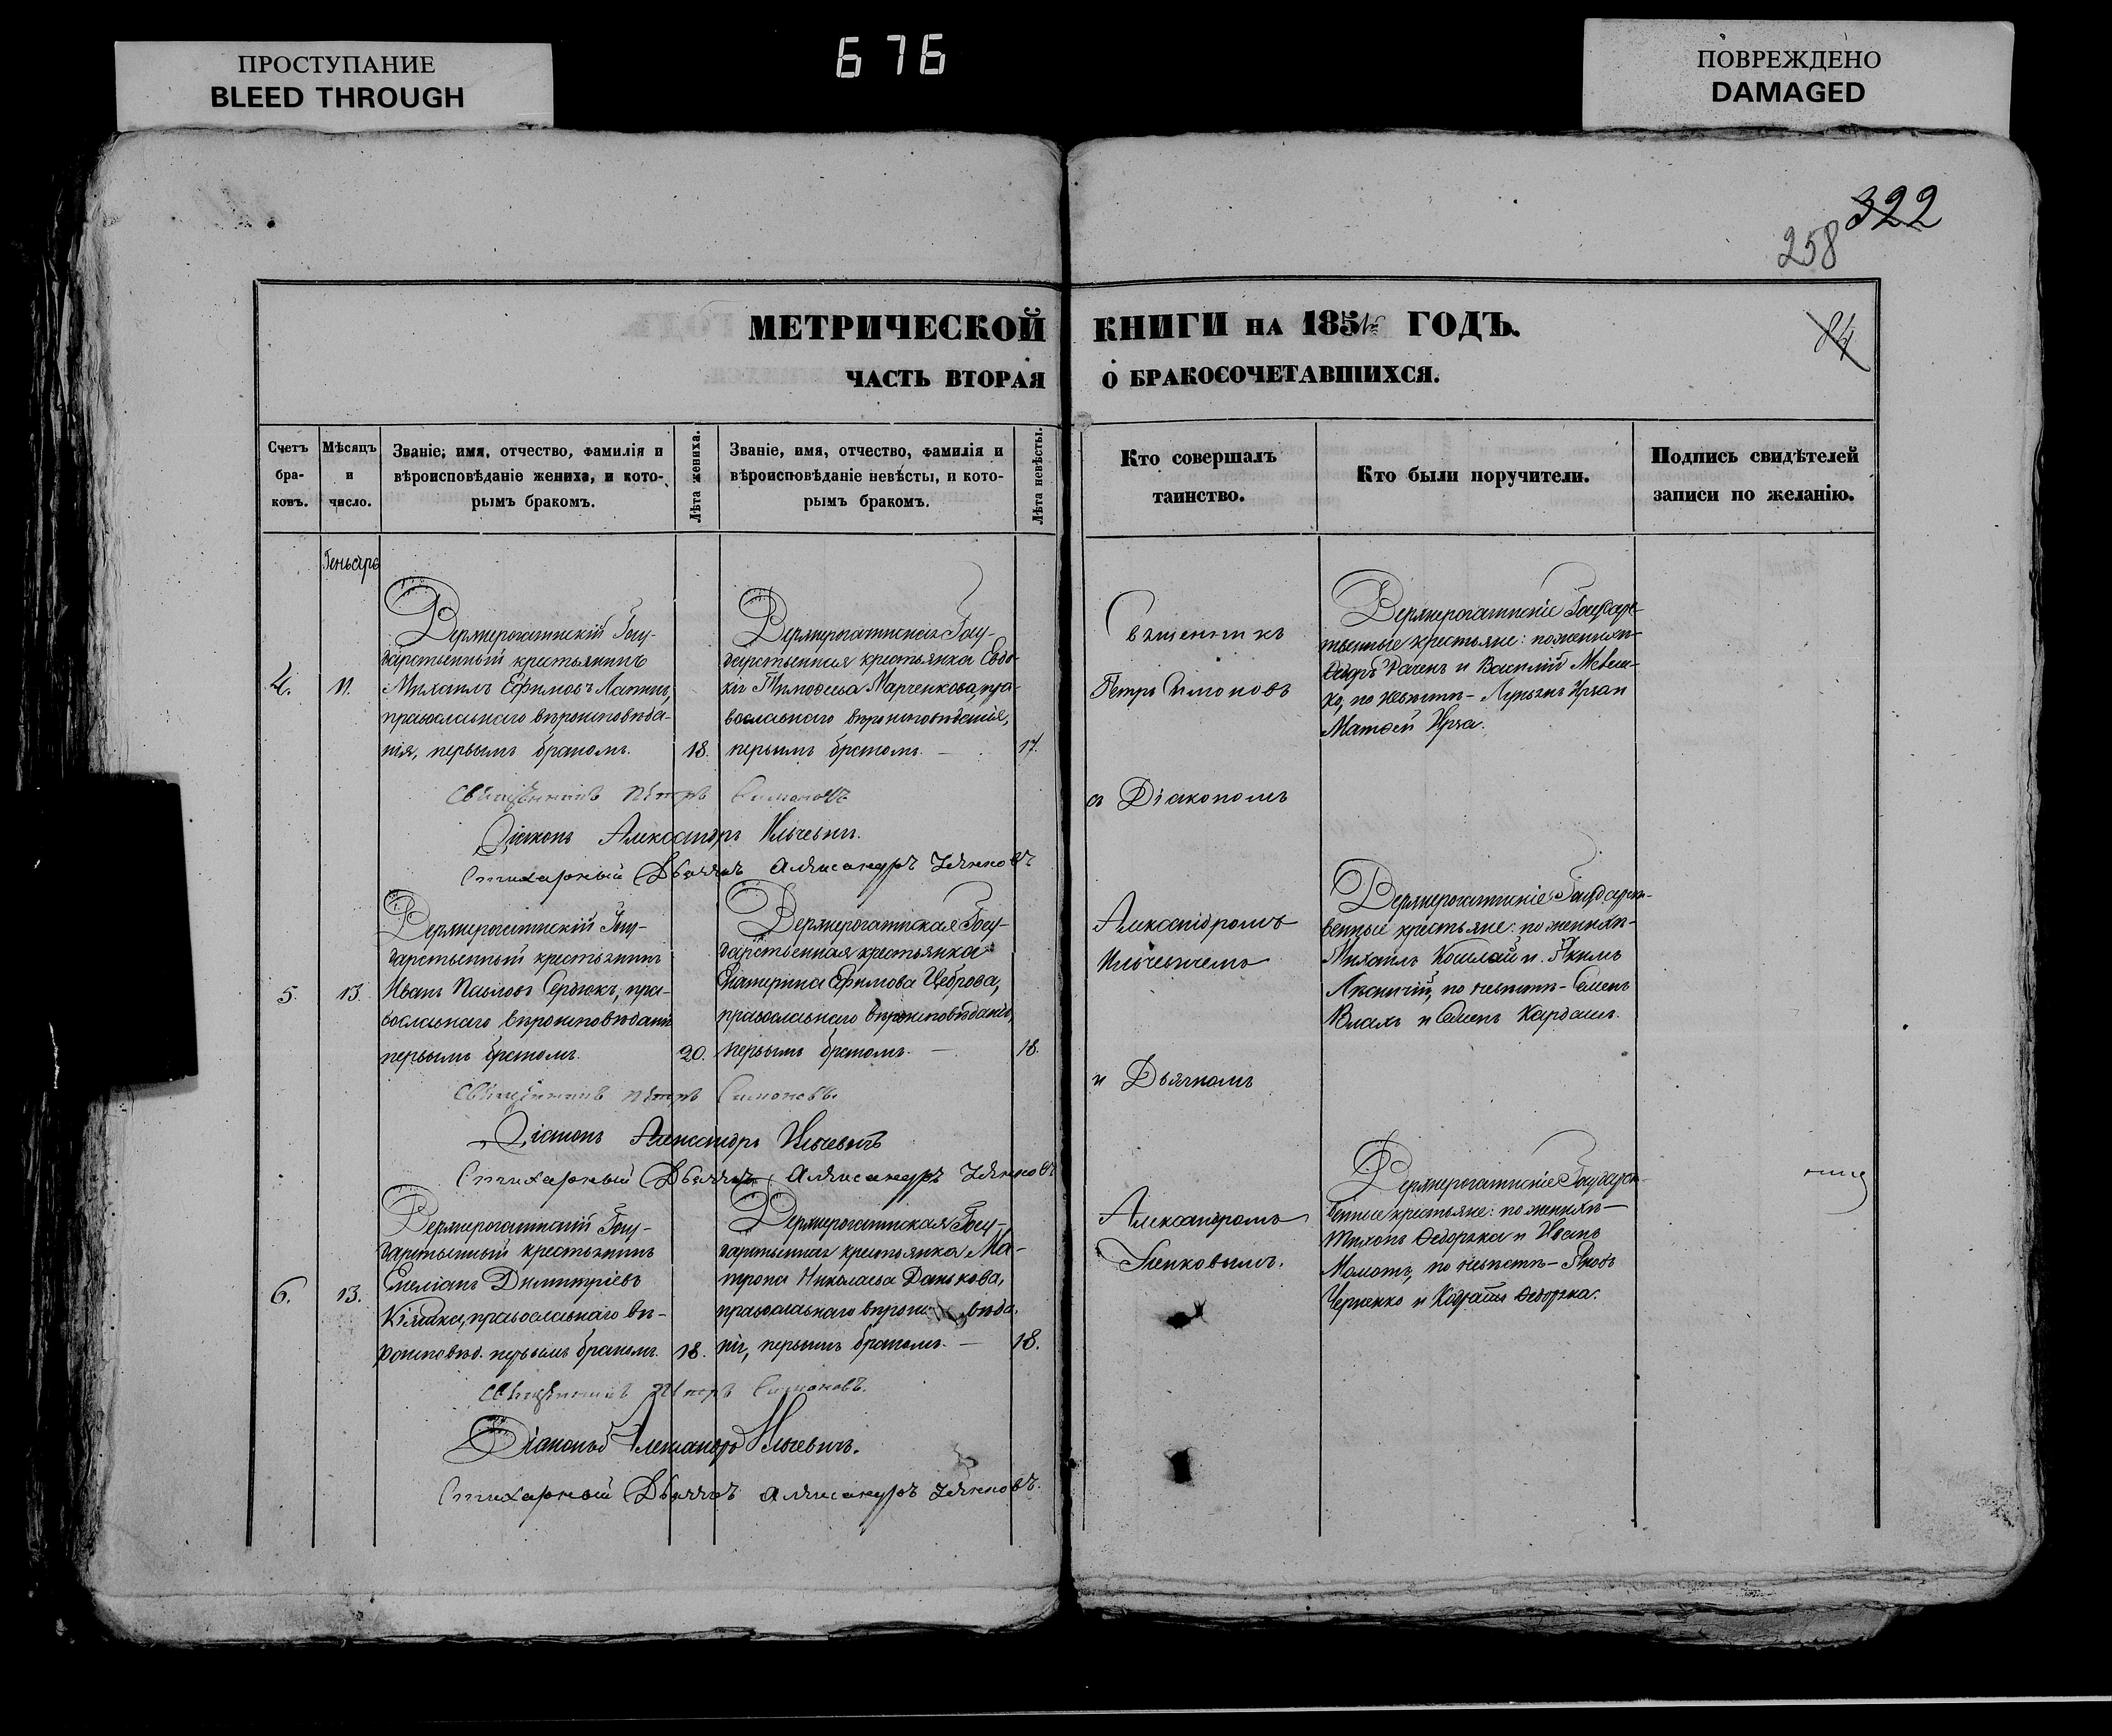 ПРОСТУПАНИЕ
BLEED THROUGH
676
ПОВРЕЖДЕНО
DAMAGED
322
258
84
МЕТРИЧЕСКОЙ КНИГИ НА 1854 ГОДЪ.
ЧАСТЬ ВТОРАЯ О БРАКОСОЧЕТАВШИХСЯ.
Счетъ
бра-
ковъ.
Мѣсяцъ
и
число.
Званіе, имя, отчество, фамилія и
вѣроисповѣданіе жениха, и кото-
рымъ бракомъ.
Лѣта жениха.
Званіе, имя, отчество, фамилія и
вѣроисповѣданіе невѣсты, и кото-
рымъ бракомъ.
Лѣта невѣсты.
Кто совершалъ
таинство.
Кто были поручители.
Подпись свидѣтелей
записи по желанію.
Геньарь
4.
11.
Верхнерогачикскій Госу-
дарственный крестьянинъ
Михаилъ Ефимовъ
православнаго вѣроисповѣда-
нія, первымъ бракомъ.
18.
Верхнерогачикская Госу-
дарственная крестьянка Евдо-
кія Тимофеева Марченкова, пра-
вославнаго вѣроисповѣданія,
первымъ бракомъ.
17.
Священникъ
Петръ Симоновъ
съ Діакономъ
Александромъ
Ильчевичемъ
и Дьячкомъ
Александромъ
Верхнерогачикскіе Государс-
твенные крестьяне: по женихѣ-
Федоръ и Василій
ко, по невѣстѣ-
Матфей
Священникъ Петръ Симоновъ
Діаконъ Александръ Ильчевичъ.
Стихарный Дьячекъ Александръ
5.
13.
Верхнерогачикскій Госу-
дарственный крестьянинъ
Иванъ Павловъ Сердюкъ, пра-
вославнаго вѣроисповѣданія
первымъ бракомъ.
20.
Верхнерогачикская Госу-
дарственная крестьянка
Екатерина Ефимова Цеброва,
православнаго вѣроисповѣданія,
первымъ бракомъ.
18.
Верхнерогачикскіе Государст-
венные крестьяне: по женихѣ-
Михаилъ и Якимъ
по невѣстѣ- Семенъ
Влахъ и Семенъ Кардашъ.
Священникъ Петръ Симоновъ.
Діаконъ Александръ Ильчевичъ
Стихарный Дьячекъ Александръ
6.
13.
Верхнерогачикскій Госу-
дарственный крестьянинъ
Емеліанъ Димитріевъ
православнаго вѣ-
роисповѣд. первымъ бракомъ.
18.
Верхнерогачикская Госу-
дарственная крестьянка Ма-
трона Николаева Данькова,
православнаго
нія, первымъ бракомъ.
18.
Верхнерогачикскіе Государст-
венные крестьяне: по женихѣ-
Тихонъ Федорка и Иванъ
Мамотъ, по невѣстѣ- Яковъ
Черненко и Федорка.
Священникъ Петръ Симоновъ.
Діаконъ Александръ Ильчевичъ.
Стихарный Дьячекъ Александръ